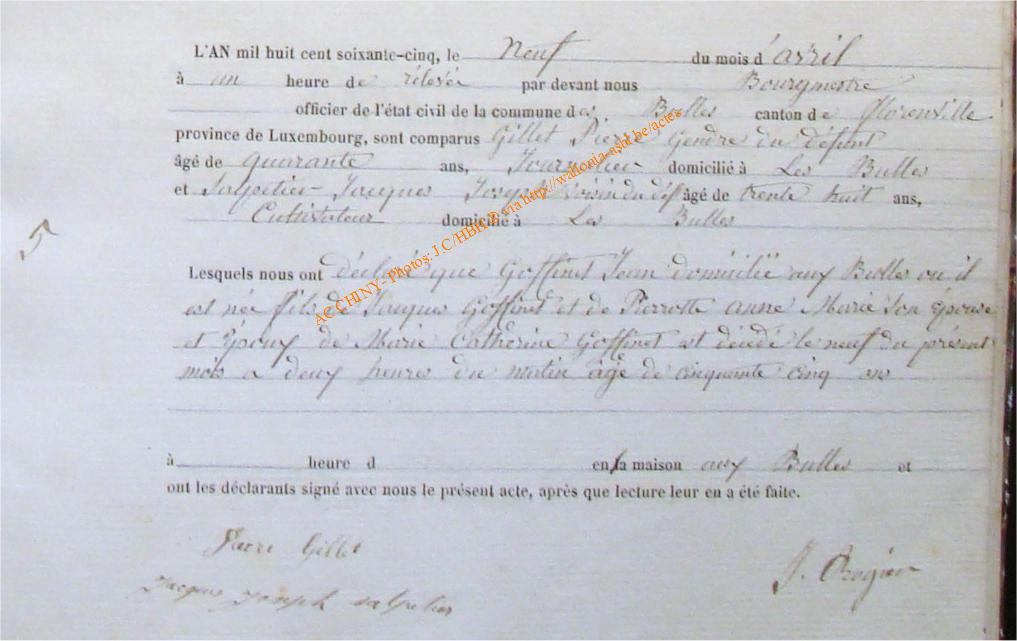 L'AN mil huit cent soixante-cinq, le Neuf du mois d'avril
à un heure de rélevée par devant nous Bourgmestre
officier de l'état civil de la commune des Bulles canton de Florenville
province de Luxembourg, sont comparus Gillet Pierre Gendre du défunt
âgé de quarante ans, Journalier domicilié à Les Bulles
et Salpetier Jacques Joseph Voisin du déf âgé de trente huit ans,
Cultivateur domicilié à Les Bulles
5
Lesquels nous ont déclaré que Goffinet Jean domicilié aux Bulles ou il
est née fils de Jacques Goffinet et de Pierrotte Anne Marie son épouse
et Époux de Marie Catherine Goffinet est décédé le neuf du présent
mois a deux heures du matin âgé de cinquante cinq ans
à heure d en la maison aux Bulles et
ont les déclarants signé avec nous le présent acte, après que lecture leur en a été faite.
Pierre Gillet
Jacques Joseph salpetier
AC CHINY -Photos: J.C/HBK/ via http://wallonia-asbl.be/actes